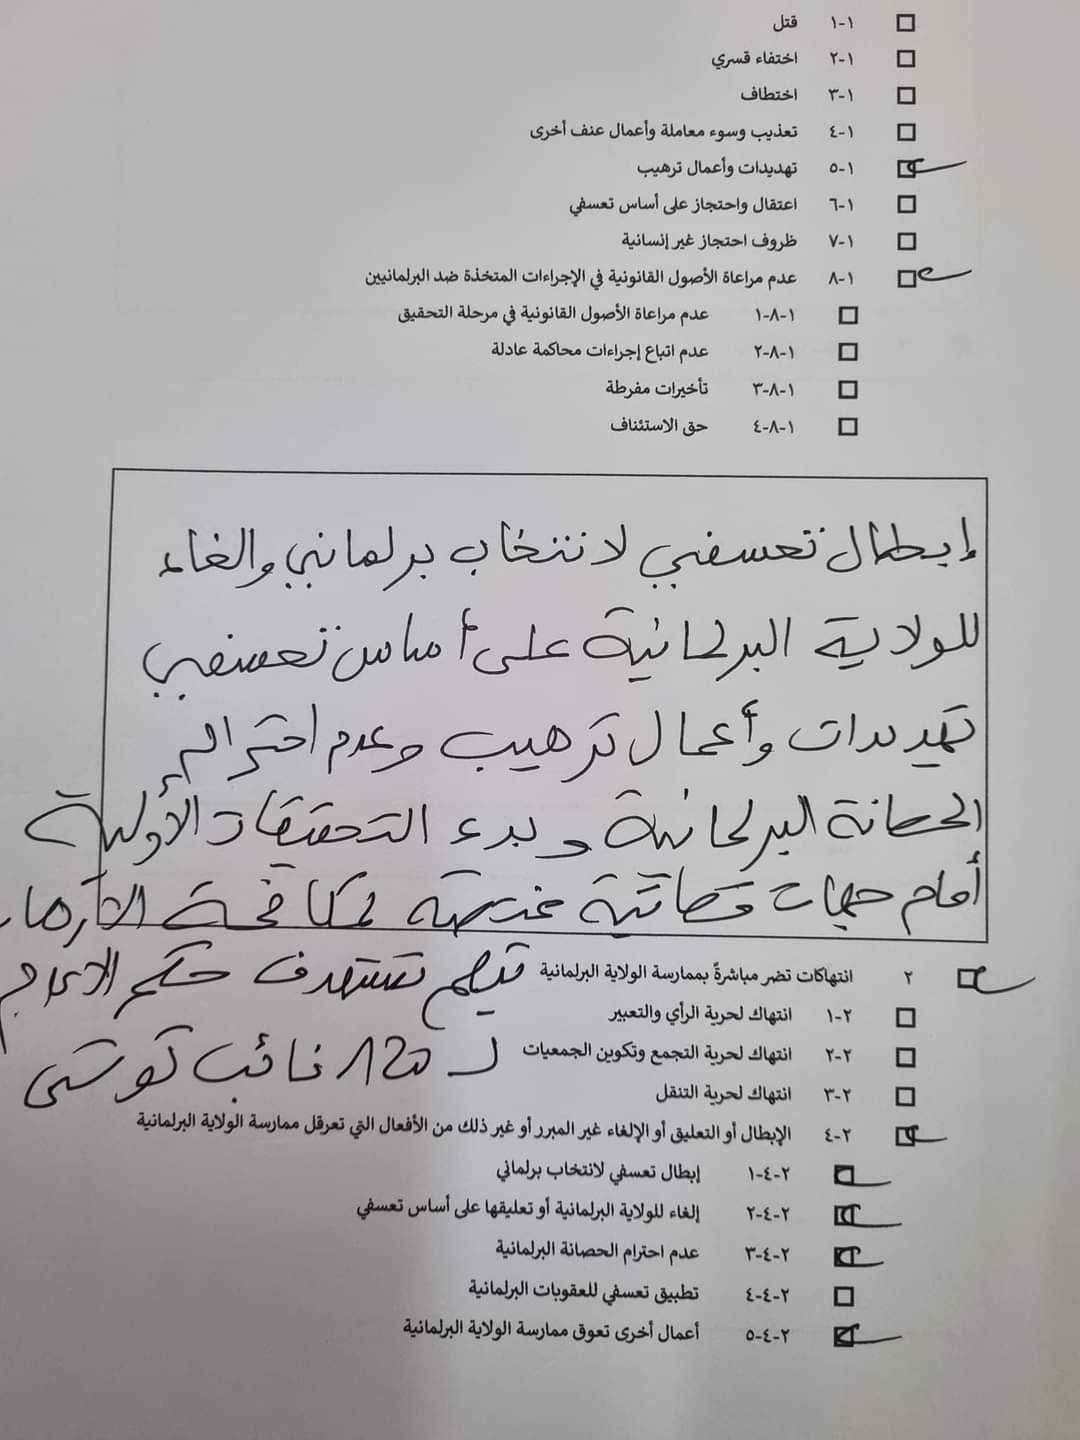 ١-١ قتل
٢-١ اختفاء قسري
٣-١ اختطاف
٤-١ تعذيب وسوء معاملة وأعمال عنف أخرى
٥-١ تهديدات وأعمال ترهيب
٦-١ اعتقال واحتجاز على أساس تعسفي
٧-١ ظروف احتجاز غير إنسانية
٨-١ عدم مراعاة الأصول القانونية في الإجراءات المتخذة ضد البرلمانيين
١-٨-١ عدم مراعاة الأصول القانونية في مرحلة التحقيق
٢-٨-١ عدم اتباع إجراءات محاكمة عادلة
٣-٨-١ تأخيرات مفرطة
٤-٨-١ حق الاستئناف
إبطال تعسفي لانتخاب برلماني والغاء
للولاية البرلمانية على أساس تعسفي
تهديدات وأعمال ترهيب وعدم احترام
الحصانة البرلمانية وبدء التحقيقات الأولية
أمام جهات قضائية مختصة لمكافحة الارهاب
٢ انتهاكات تضر مباشرةً بممارسة الولاية البرلمانية
تستهدف حكم الاعدام
١-٢ انتهاك لحرية الرأي والتعبير
٢-٢ انتهاك لحرية التجمع وتكوين الجمعيات
نائب تونسي
٣-٢ انتهاك لحرية التنقل
٤-٢ الإبطال أو التعليق أو الإلغاء غير المبرر أو غير ذلك من الأفعال التي تعرقل ممارسة الولاية البرلمانية
١-٤-٢ إبطال تعسفي لانتخاب برلماني
٢-٤-٢ إلغاء للولاية البرلمانية أو تعليقها على أساس تعسفي
٣-٤-٢ عدم احترام الحصانة البرلمانية
٤-٤-٢ تطبيق تعسفي للعقوبات البرلمانية
٥-٤-٢ أعمال أخرى تعوق ممارسة الولاية البرلمانية